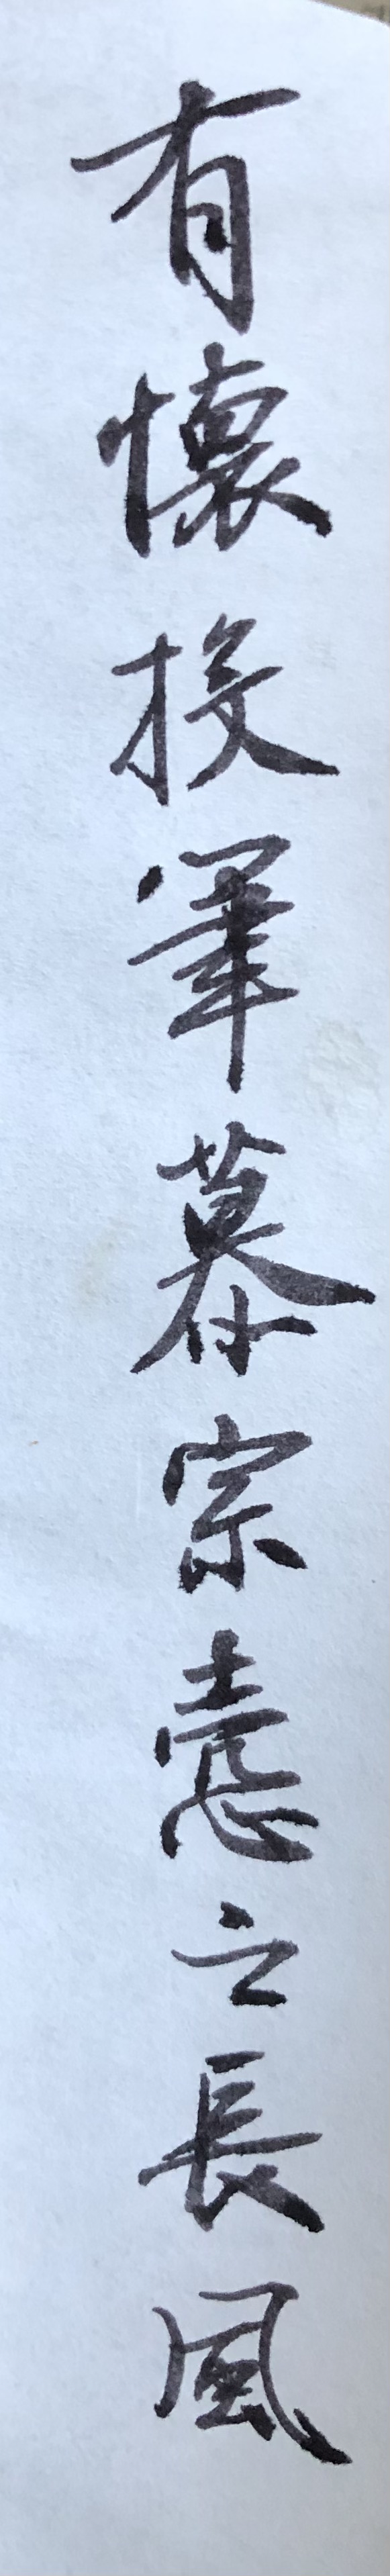 有懷投筆慕宗慤之長風